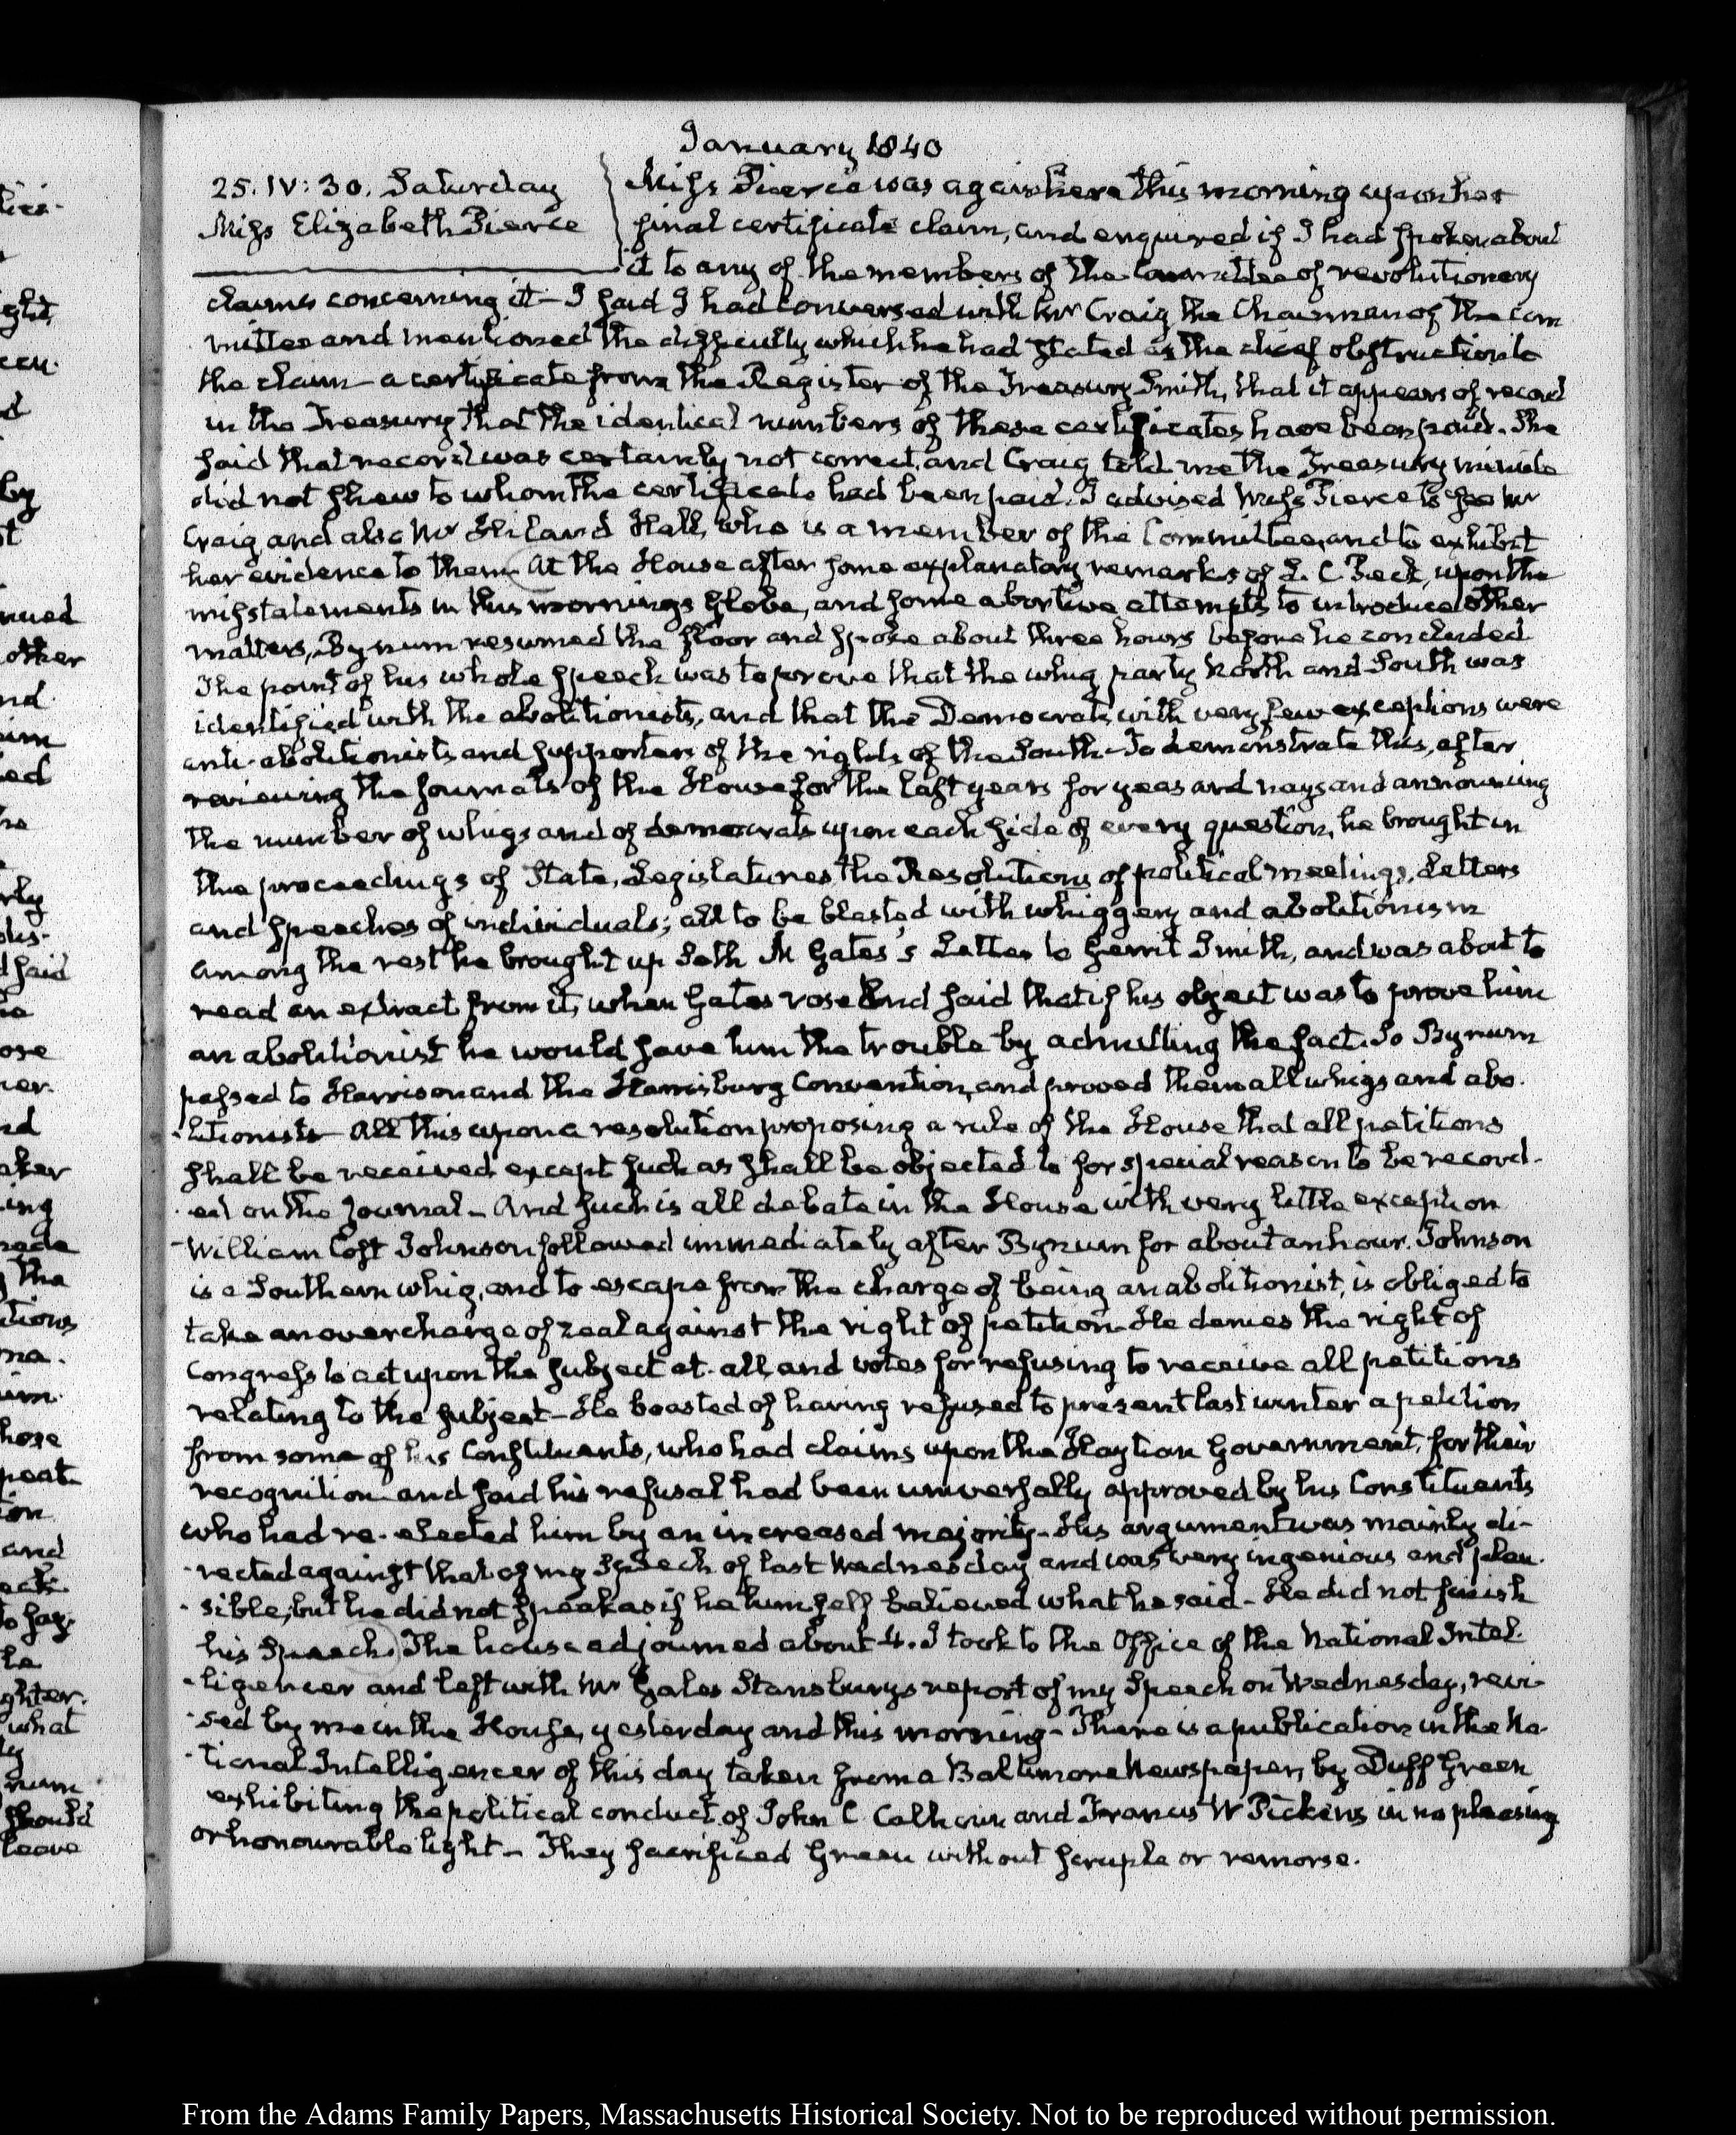 January 1840
25. IV: 30. Saturday
Miss Elizabeth Pierce
Miss Pierce was again here this morning upon her
final certificate claim, and enquired if I had spoken about
it to any of the members of the Committee of revolutionary
claims concerning it – I said I had conversed with Mr Craig the Chairman of the Com
mittee and mentioned the difficulty which he had stated as the chief obstruction to
the claim – a certificate from the Register of the Treasury Smith, that it appears of record
in the Treasury that the identical numbers of these certificates have been paid. She
said that record was certainly not correct, and Craig told me the Treasury minute
did not shew to whom the certificate had been paid. I advised Miss Pierce to see Mr
Craig and also Mr Hiland Hall, who is a member of the Committee, and to exhibit
her evidence to them. At the House after some explanatory remarks of L. C. Peck, upon the
misstatements in this mornings Globe, and some abortive attempts to introduce other
matters, Bynum resumed the floor and spoke about three hours before he concluded
The point of his whole speech was to prove that the whig party North and South was
identified with the abolitionists, and that the Democrats, with very few exceptions were
anti-abolitionists and supporters of the rights of the South – To demonstrate this, after
reviewing the journals of the House for the last years for yeas and nays and announcing
the number of whigs and of democrats upon each side of every question, he brought in
the proceedings of State, Legislatures, the Resolutions of political meetings, Letters
and speeches of individuals; all to be blasted with whiggery and abolitionism
Among the rest he brought up Seth M Gates's Letter to Gerrit Smith, and was about to
read an extract from it, when Gates rose and said that if his object was to prove him
an abolitionist he would save him the trouble by admitting the fact. So Bynum
passed to Harrison and the Harrisburg Convention, and proved them all whigs and abo-
litionists – All this upon a resolution proposing a rule of the House that all petitions
shall be received except such as shall be objected to for special reason to be record-
ed on the Journal – And such is all debate in the House with very little exception
William Cost Johnson followed immediately after Bynum for about an hour. Johnson
is a Southern whig, and to escape from the charge of being an abolitionist, is obliged to
take an overcharge of zeal against the right of petition – He denies the right of
Congress to act upon the subject at all, and votes for refusing to receive all petitions
relating to the subject – He boasted of having refused to present last winter a petition
from some of his Constituents, who had claims upon the Haytian Government, for their
recognition and said his refusal had been universally approved by his Constituents
who had re-elected him by an increased majority – His argument was mainly di-
rected against that of my Speech of last Wednesday and was very ingenious and plau-
sible; but he did not speak as if he himself believed what he said – He did not finish
his Speech. The house adjourned about 4. I took to the Office of the National Intel-
ligencer and left with Mr Gales Stansburys report of my Speech on Wednesday, revi-
sed by me in the House, yesterday and this morning – There is a publication in the Na-
tional Intelligencer of this day taken from a Baltimore Newspaper, by Duff Green
exhibiting the political conduct of John C Calhoun and Francis W Pickens in no pleasing
or honourable light – They sacrificed Green without scruple or remorse.
From the Adams Family Papers, Massachusetts Historical Society. Not to be reproduced without permission.